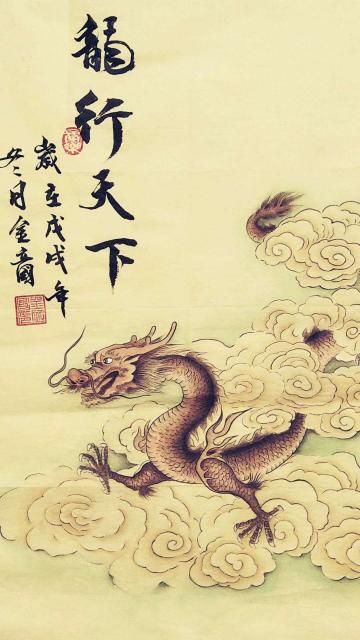 龍行天下
歲在戊戌年
冬月金